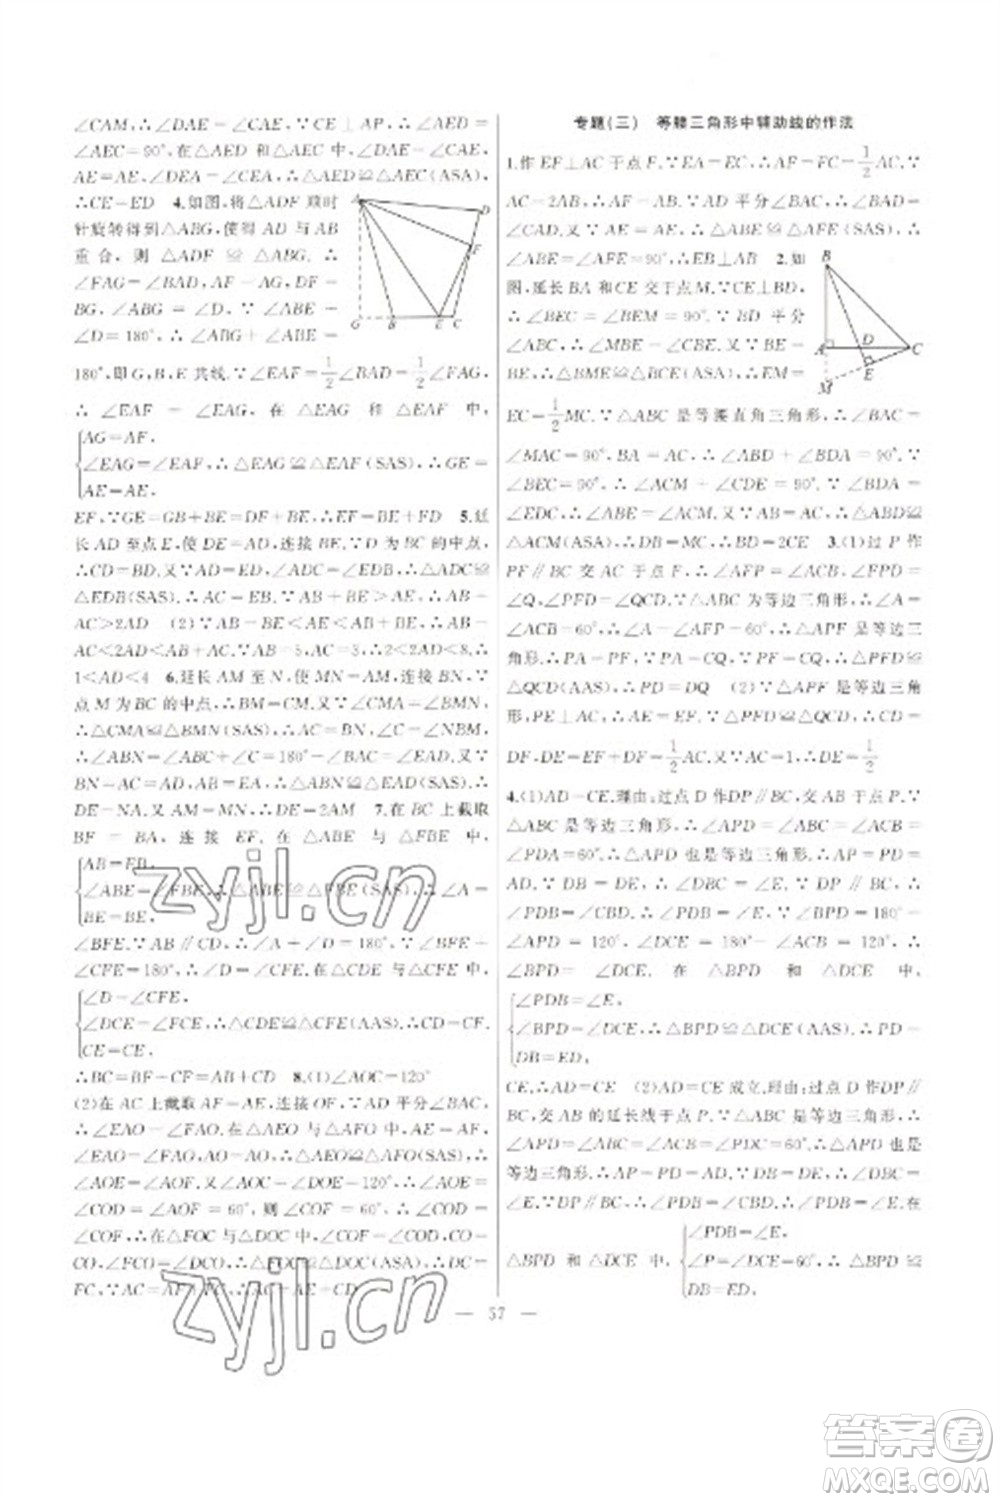 ∠CAM,∴∠AED=∠AEC.又∵CE⊥AP,∴∠AED=
∠AEC=90°,在△AED和△AEC中,∠DAE=∠CAE,
AE=AE,∠DEA=∠CEA,∴△AED≌△AEC(ASA),
∴CE=ED 4.如图,将△ADF顺时
针旋转得到△ABG,使得AD与AB
重合,则△ADF≌△ABG,∴
∠FAG=∠BAD,AF=AG,DF=
BG,∠ABG=∠D.∵∠ABE+
∠D=180°,∴∠ABG+∠ABE=
180°,即G,B,E共线.∵∠EAF=1/2∠BAD=1/2∠FAG,
∴∠EAF=∠EAG,在△EAG和△EAF中,
AG=AF,
∠EAG=∠EAF,∴△EAG≌△EAF(SAS),∴GE=
AE=AE,
EF,∵GE=GB+BE=DF+BE,∴EF=BE+FD 5.延
长AD至点E,使AD=DE,连接BE,∵D为BC的中点,
∴CD=BD,又∵∠ADC=∠BDE,∴△ADC≌
△EDB(SAS),∴AC=EB.∵AB+BE>AE,∴AB+
AC>2AD (2)∵AB-BE<AE<AB+BE,∴AB-
AC<2AD<AB+AC.∵AB=5,AC=3,∴2<2AD<8,
1<AD<4 6.延长AM至N,使MN=AM,连接BN,∵
点M为BC的中点,∴BM=CM,又∵∠CMA=∠BMN,
∴△CMA≌△BMN(SAS),∴AC=BN,∠C=∠NBM,
∴∠ABN=∠ABC+∠C=180°-∠BAC=∠EAD,又∵
BN=AC=AD,AB=EA,∴△ABN≌△EAD(SAS),∴
DE=NA,又AM=MN,∴DE=2AM 7.在BC上截取
BF=BA,连接EF,在△ABE与△FBE中,
AB=FB,
∠ABE=∠FBE,∴△ABE≌△FBE(SAS),∴∠A=
BE=BE,
∠BFE.∵AB∥CD,∴∠A+∠D=180°,∵∠BFE+
∠CFE=180°,∴∠D=∠CFE,在△CDE与△CFE中,
∠D=∠CFE,
∠DCE=∠FCE,∴△CDE≌△CFE(AAS),∴CD=CF,
CE=CE,
∴BC=BF+CF=AB+CD 8.(1)∠AOC=120°
(2)在AC上截取AF=AE,连接OF,∵AD平分∠BAC,
∴∠EAO=∠FAO,在△AEO与△AFO中,AE=AF,
∠EAO=∠FAO,AO=AO,∴△AEO≌△AFO(SAS),∴
∠AOE=∠AOF,又∠AOC=∠DOE=120°,∴∠AOE=
∠COD=∠AOF=60°,则∠COF=60°,∴∠COD=
∠COF,∴在△FOC与△DOC中,∠COF=∠COD,
CO=CO,∠FCO=∠DCO,∴△FOC≌△DOC(ASA),∴DC=
FC,∵AC=AF+FC,∴AC=AE+CD
专题(三) 等腰三角形中辅助线的作法
1.作EF⊥AC于点F,∵EA=EC,∴AF=FC=1/2AC,∵
AC=2AB,∴AF=AB,∵AD平分∠BAC,∴∠BAD=
∠CAD.又∵AE=AE,∴△ABE≌△AFE(SAS),∴
∠ABE=∠AFE=90°,∴EB⊥AB 2.如
图,延长BA和CE交于点M,∵CE⊥BD,
∴∠BEC=∠BEM=90°,∵BD平分
∠ABC,∴∠MBE=∠CBE,又∵BE=
BE,∴△BME≌△BCE(ASA),∴EM=
EC=1/2MC.∵△ABC是等腰直角三角形,∴∠BAC=
∠MAC=90°,BA=AC,∴∠ABD+∠BDA=90°,∵
∠BEC=90°,∴∠ACM+∠CDE=90°,∵∠BDA=
∠CDE,∴∠ABE=∠ACM,又∵AB=AC,∴△ABD≌
△ACM(ASA),∴DB=MC,∴BD=2CE 3.(1)过P作
PF∥BC交AC于点F,∴∠AFP=∠ACB,∠FPD=
∠Q,∠PFD=∠QCD.∵△ABC为等边三角形,∴∠A=
∠ACB=60°,∴∠A=∠AFP=60°,∴△APF是等边三
角形,∴PA=PF,∵PA=CQ,∴PF=CQ,∴△PFD≌
△QCD(ASA),∴PD=DQ (2)∵△APF是等边三角
形,PE⊥AC,∴AE=EF,∵△PFD≌△QCD,∴CD=
DF,DF+DE=EF+DF=1/2AC,又∵AC=1,∴DE=1/2
4.(1)AD=CE,理由:过点D作DP∥BC,交AB于点P,∵
△ABC是等边三角形,∴∠APD=∠ABC=∠ACB=
∠PDA=60°,∴△APD也是等边三角形,∴AP=PD=
AD,∵DB=DE,∴∠DBC=∠E,∵DP∥BC,∴
∠PDB=∠DBC,∴∠PDB=∠E,∵∠BPD=180°-
∠APD=120°,∠DCE=180°-∠ACB=120°,∴
∠BPD=∠DCE.在△BPD和△DCE中,
∠PDB=∠E,
∠BPD=∠DCE,∴△BPD≌△DCE(AAS),∴PD=
DB=ED,
CE,∴AD=CE (2)AD=CE成立,理由:过点D作DP∥
BC,交AB的延长线于点P.∵△ABC是等边三角形,∴
∠APD=∠ABC=∠ACB=∠PDC=60°,∴△APD也是
等边三角形,∴AP=PD=AD,∵DB=DE,∴∠DBC=
∠E,∵DP∥BC,∴∠PDB=∠CBD,∴∠PDB=∠E,在
∠PDB=∠E,
△BPD和△DCE中,∠P=∠DCE=60°,∴△BPD≌
DB=ED,
A
D
F
G
B
E
C
B
A
D
C
E
M
— 57 —
zyjl.cn
zyjl.cn
答案圈
MXQE.COM